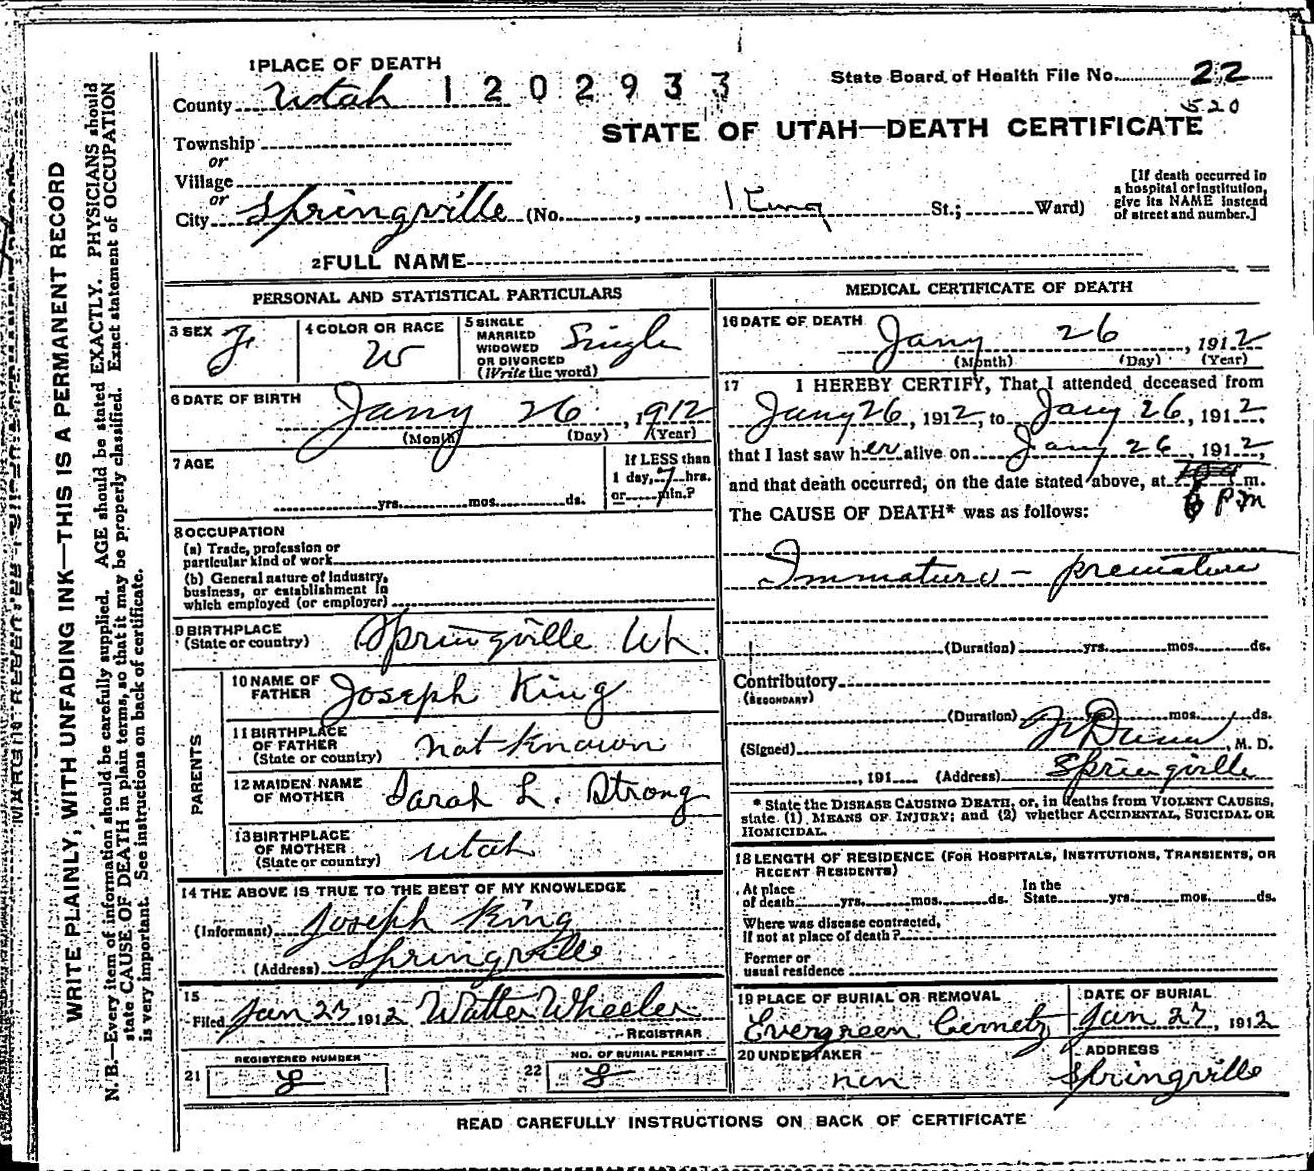 1 PLACE OF DEATH
County Utah 1 2 0 2 9 3 3
State Board of Health File No. 22
520
STATE OF UTAH—DEATH CERTIFICATE
Township
or
Village
or
City Springville (No. , King St.; Ward)
[If death occurred in
a hospital or institution,
give its NAME instead
of street and number.]
2 FULL NAME
PERSONAL AND STATISTICAL PARTICULARS
3 SEX F
4 COLOR OR RACE W
5 SINGLE
MARRIED
WIDOWED
OR DIVORCED
(Write the word) Single
6 DATE OF BIRTH Jany 26, 1912
(Month) (Day) (Year)
7 AGE
yrs. mos. ds.
If LESS than
1 day, 7 hrs.
or min.?
8 OCCUPATION
(a) Trade, profession or
particular kind of work
(b) General nature of industry,
business, or establishment in
which employed (or employer)
9 BIRTHPLACE
(State or country) Springville Ut.
PARENTS
10 NAME OF
FATHER Joseph King
11 BIRTHPLACE
OF FATHER
(State or country) not Known
12 MAIDEN NAME
OF MOTHER Sarah L. Strong
13 BIRTHPLACE
OF MOTHER
(State or country) Utah
14 THE ABOVE IS TRUE TO THE BEST OF MY KNOWLEDGE
(Informant) Joseph King
(Address) Springville
15
Filed Jan 27 1912 Walter Wheeler
REGISTRAR
REGISTERED NUMBER
21
NO. OF BURIAL PERMIT
22
MEDICAL CERTIFICATE OF DEATH
16 DATE OF DEATH
Jany 26, 1912
(Month) (Day) (Year)
17 I HEREBY CERTIFY, That I attended deceased from
Jany 26, 1912, to Jany 26, 1912.
that I last saw her alive on Jany 26, 1912,
and that death occurred, on the date stated above, at m.
6 P.m
The CAUSE OF DEATH* was as follows:
Immature - premature
(Duration) yrs. mos. ds.
Contributory
(SECONDARY)
(Duration) yrs. mos. ds.
(Signed) Dunn, M. D.
, 191 (Address) Springville
* State the DISEASE CAUSING DEATH, or, in deaths from VIOLENT CAUSES,
state (1) MEANS OF INJURY; and (2) whether ACCIDENTAL, SUICIDAL OR
HOMICIDAL.
18 LENGTH OF RESIDENCE (FOR HOSPITALS, INSTITUTIONS, TRANSIENTS, OR
RECENT RESIDENTS)
At place
of death yrs. mos. ds.
In the
State yrs. mos. ds.
Where was disease contracted,
if not at place of death?
Former or
usual residence
19 PLACE OF BURIAL OR REMOVAL
Evergreen Cemetry
DATE OF BURIAL
Jan 27, 1912
20 UNDERTAKER
non
ADDRESS
Springville
READ CAREFULLY INSTRUCTIONS ON BACK OF CERTIFICATE
WRITE PLAINLY, WITH UNFADING INK—THIS IS A PERMANENT RECORD
N. B.—Every item of information should be carefully supplied. AGE should be stated EXACTLY. PHYSICIANS should
state CAUSE OF DEATH in plain terms, so that it may be properly classified. Exact statement of OCCUPATION
is very important. See instructions on back of certificate.